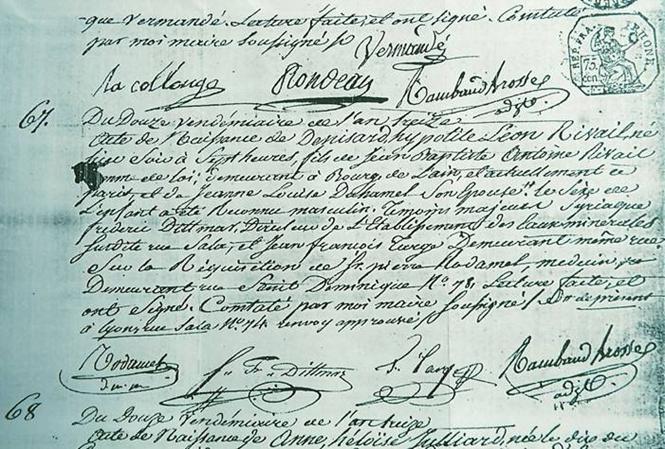 que Vermandé. Lecture faite, et ont signé. Constaté
par moi maire Soussigné
Vermandé
La collonge Rondeau Rambaud Brosse
adjt.
67.
RÉP. FRA. RHONE.
75
Du Douze Vendémiaire de l'an treize
Acte de Naissance de Denisard hypolite Léon Rivail, né
hier Soir à Sept heures, fils de Jean Baptiste Antoine Rivail
homme de loi, Demeurant à Bourg de Lain, et actuellement à
paris, et de Jeanne Louise Duhamel Son Epouse. le Sexe de
L'enfant a été Reconnu masculin. Temoins majeurs Syriaque
frédéric Dittmar, Directeur de L'Etablissement des Eaux minérales
susdite rue Sala, et Jean François Targe Demeurant même rue
Sur la Réquisition de Sr. pierre Rodamel, medecin
Demeurant rue Saint Dominique No. 78, Lecture faite, et
ont Signé. Constaté par moi maire Soussigné
à Lyon, rue Sala No. 74 renvoy approuvé
Rodamel f. Dittmar Targe Rambaud Brosse
adjt.
68
Du Douze Vendémiaire de l'an treize
Acte de Naissance de Anne, Héloïse Julliard, née le dix du